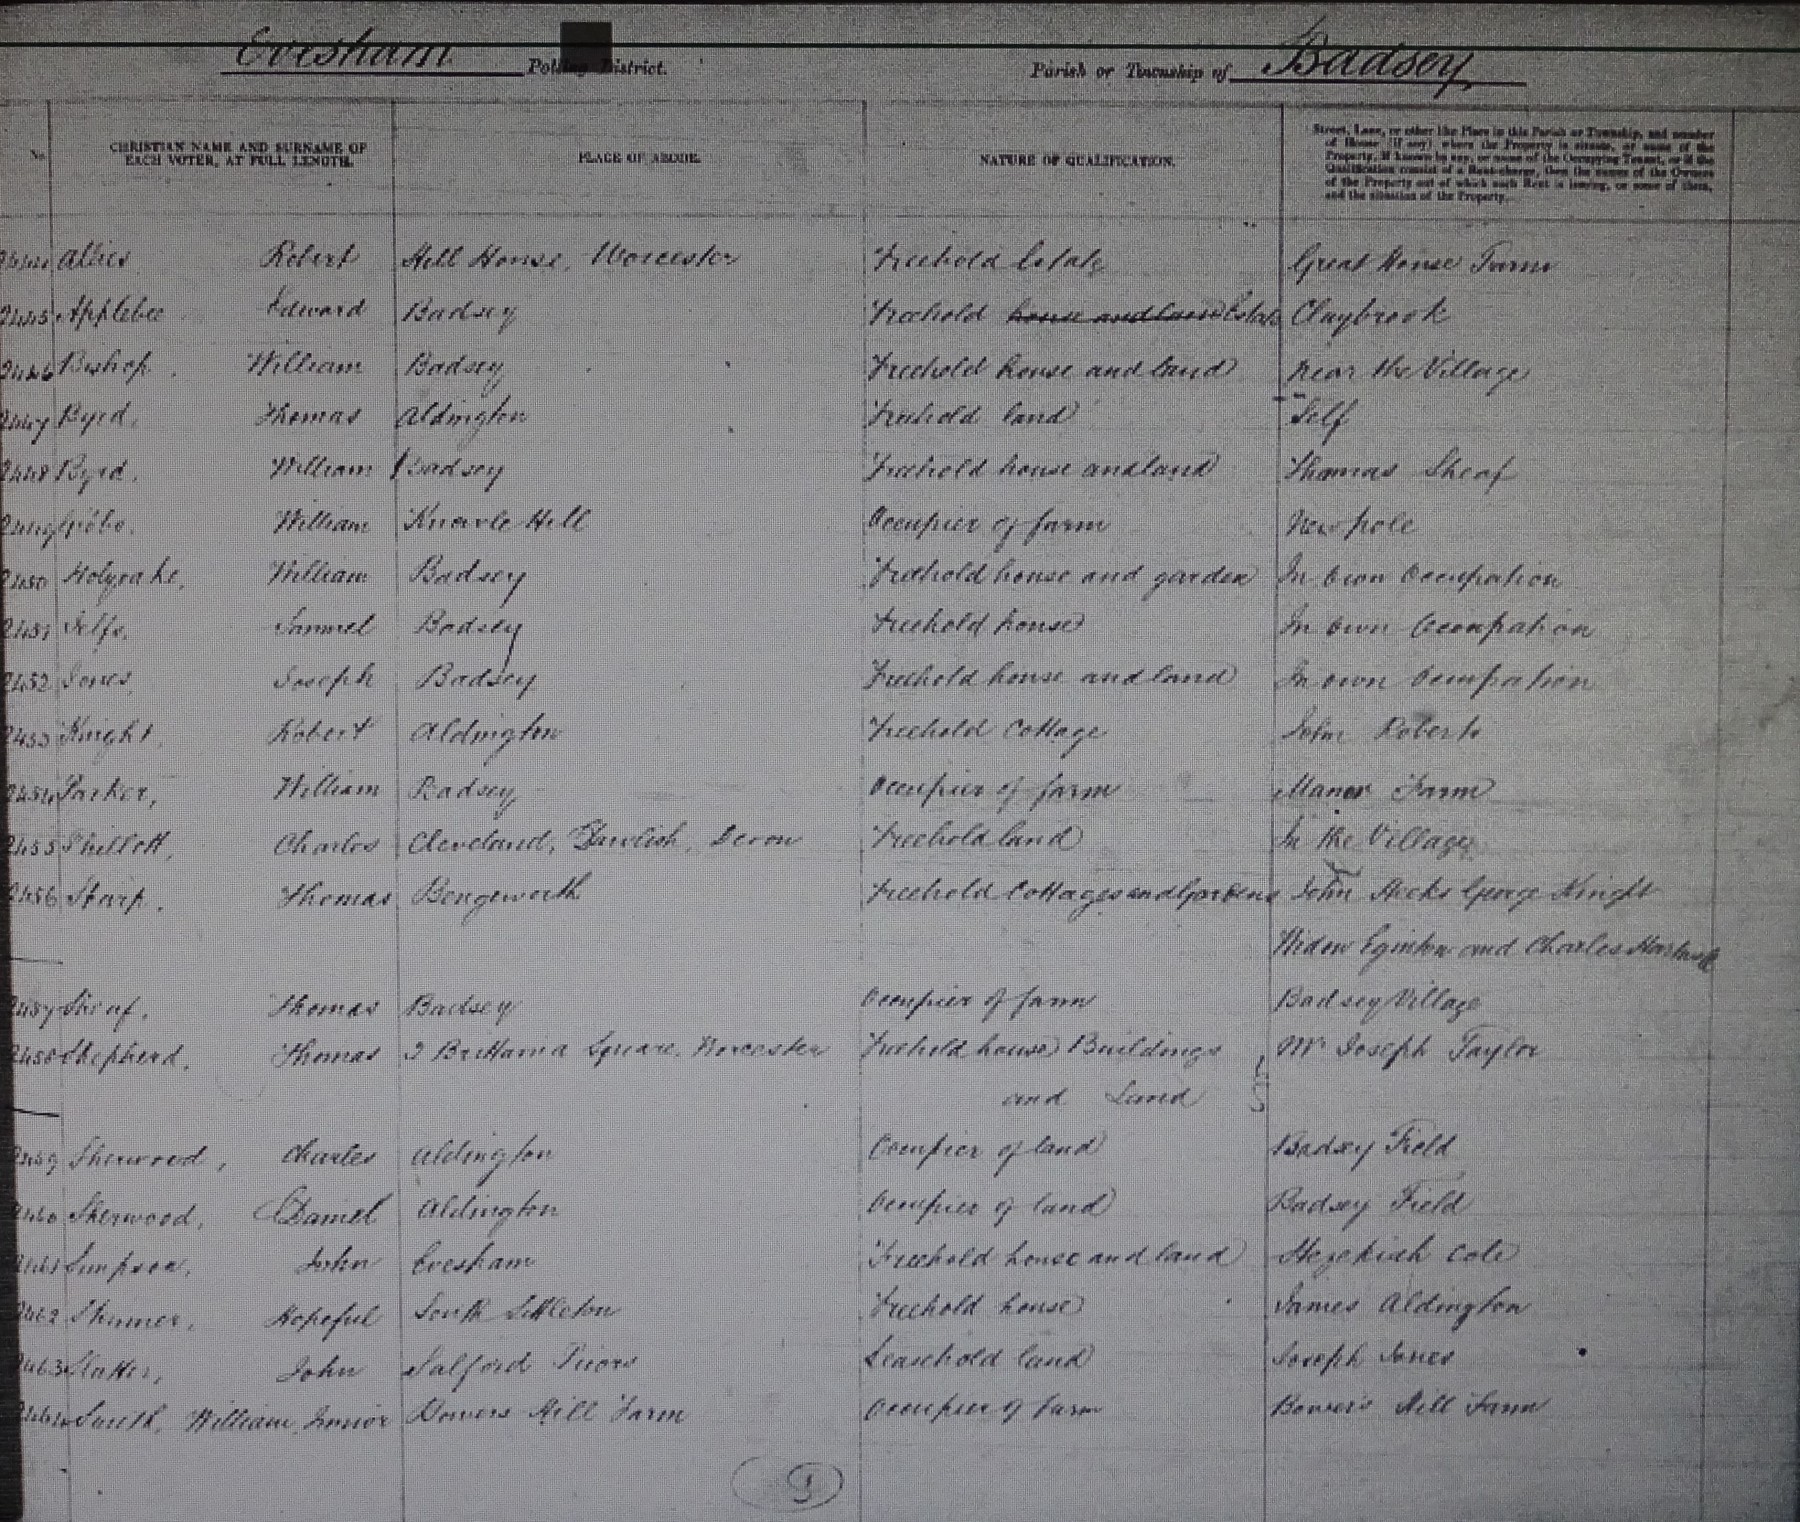 Evesham Polling District. Parish or Township of Badsey
No. CHRISTIAN NAME AND SURNAME OF EACH VOTER, AT FULL LENGTH. PLACE OF ABODE. NATURE OF QUALIFICATION. Street, Lane, or other like Place in this Parish or Township, and number of House (if any) where the Property is situate, or name of the Property, if known by any, or name of the Occupying Tenant, or if the Qualification consist of a Rent-charge, then the names of the Owners of the Property out of which such Rent is issuing, or some of them, and the situation of the Property.
2444 Allies Robert Hill House, Worcester Freehold Estate Great House Farm
2445 Applebee Edward Badsey Freehold house and land Estate Claybrook
2446 Bishop William Badsey Freehold house and land near the Village
2447 Byrd, Thomas Aldington Freehold land Self
2448 Byrd, William Badsey Freehold house and land Thomas Sheaf
2449 William Knowle Hill Occupier of farm
2450 Holyoake, William Badsey Freehold house and garden In own Occupation
2451 Jelfs, Samuel Badsey Freehold house In own Occupation
2452 Jones, Joseph Badsey Freehold house and land In own Occupation
2453 Knight, Robert Aldington Freehold Cottage John Roberts
2454 Parker, William Badsey Occupier of farm Manor Farm
2455 Phillott, Charles Cleveland, Dawlish, Devon Freehold land In the Village
2456 Sharp, Thomas Bengeworth Freehold Cottages and Gardens John Hicks George Knight
Widow Eginton and Charles Hartwell
2457 Sheaf, Thomas Badsey Occupier of farm Badsey Village
2458 Shepherd, Thomas 2 Brittania Square, Worcester Freehold house Buildings Mr Joseph Taylor
and Land
2459 Sherwood, Charles Aldington Occupier of land Badsey Field
2460 Sherwood, Daniel Aldington Occupier of land Badsey Field
2461 Simpson, John Evesham Freehold house and land Hezekiah Cole
2462 Hopeful South Littleton Freehold house James Aldington
2463 Slatter, John Salford Priors Leasehold land Joseph Jones
2464 Smith, William, Junior Bowers Hill Farm Occupier of farm Bower's Hill Farm